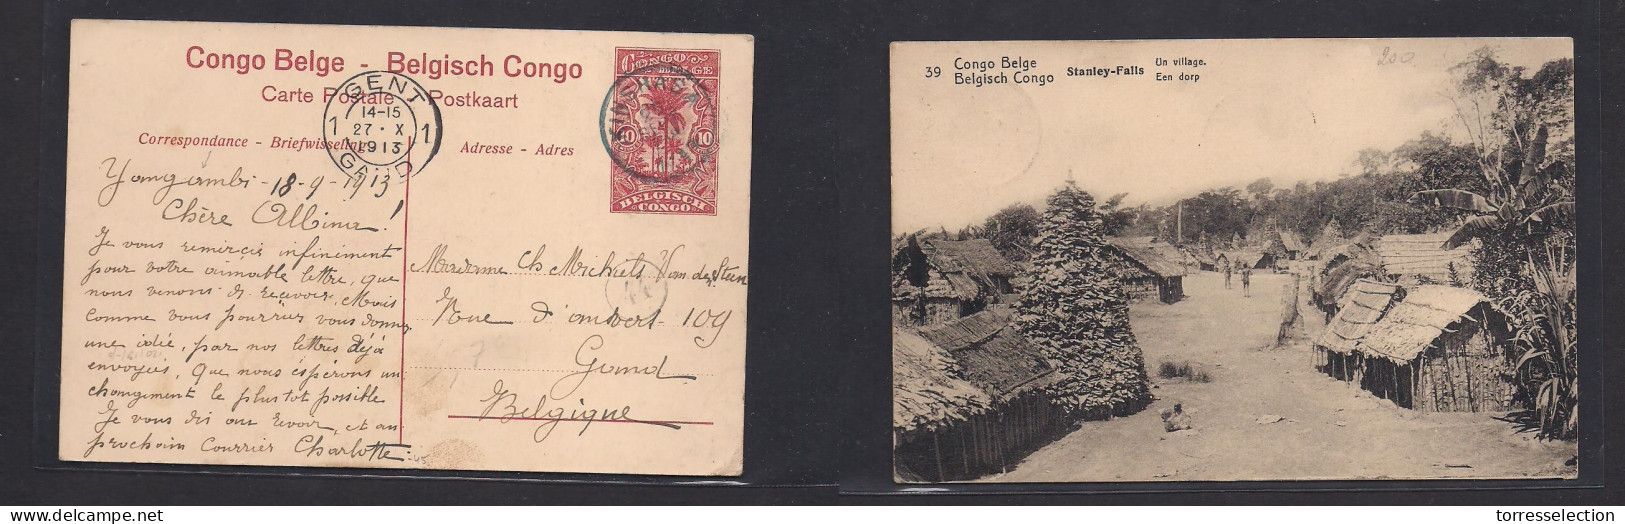 Congo Belge - Belgisch Congo
Carte Postale Postkaart
Correspondance - Briefwisseling
Adresse - Adres
CONGO BELGE
10 10
BELGISCH CONGO
KINSHASA
GENT
14-15
1 27 · X 1
1913
GAND
Yangambi - 18-9-1913
Chère Albina!
Je vous remircie infiniment
pour votre aimable lettre, que
nous venons de recevoir, Mais
comme vous pourriez vous donner
une idée, par nos lettres déjà
envoyées, que nous espérons un
changement le plus tot possible
Je vous dis au revoir, et au
prochain courrier Charlotte
Madame Ch Michiels Van den Steen
Rue d'anvers 109
Gand
Belgique
44
39 Congo Belge
Belgisch Congo
Stanley-Falls
Un village.
Een dorp
200
torresselection